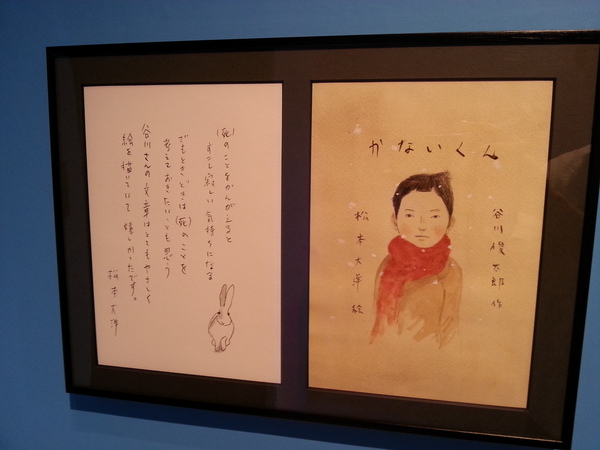 (死)のことをかんがえると
すこし寂しい気持ちになる
でもときどきは(死)のことを
考えておきたいとも思う
谷川さんの文章はとてもやさしく
絵を描いていて嬉しかったです。
松本大洋
かないくん
谷川俊太郎 作
松本大洋 絵